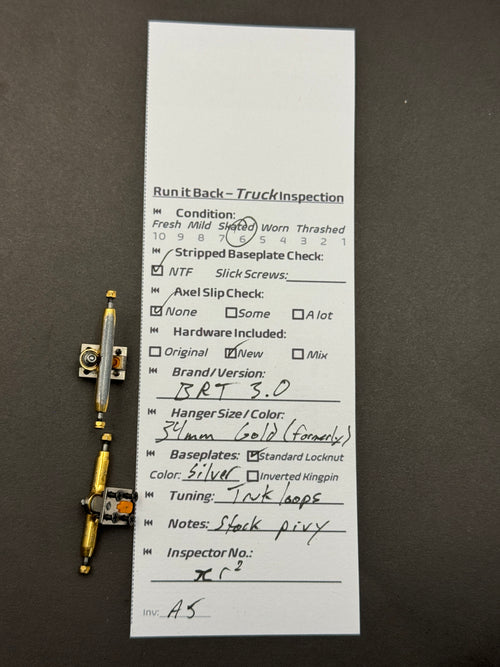 Run it Back – Truck Inspection
Condition:
Fresh Mild Skated Worn Thrashed
10 9 8 7 6 5 4 3 2 1
Stripped Baseplate Check:
NTF Slick Screws:
Axel Slip Check:
None Some A lot
Hardware Included:
Original New Mix
Brand/Version:
BRT 3.0
Hanger Size/Color:
34mm Gold (formerly)
Baseplates: Standard Locknut
Color: Silver Inverted Kingpin
Tuning: Tnk loops
Notes: Stock pivy
Inspector No.:
Inv: A5